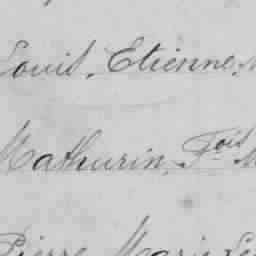 Louis, Etienne,
Mathurin, Fois M
Pierre Marie